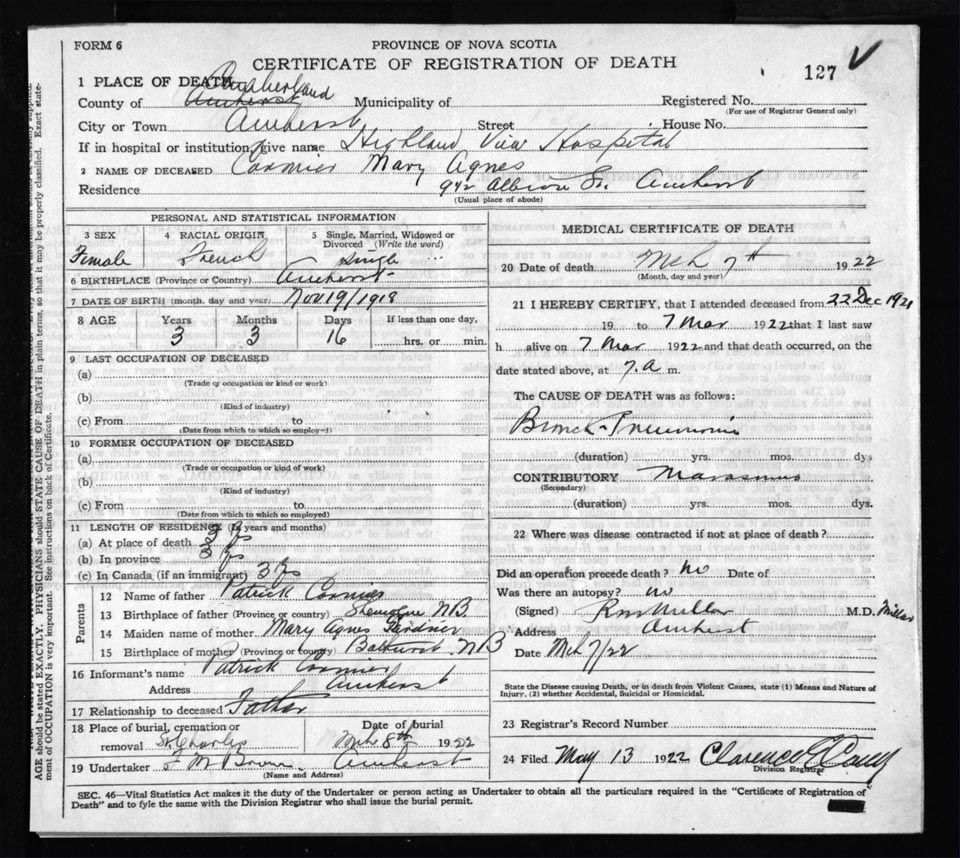 FORM 6
PROVINCE OF NOVA SCOTIA
CERTIFICATE OF REGISTRATION OF DEATH
127
1 PLACE OF DEATH
County of Amherst Cumberland Municipality of Registered No.
(For use of Registrar General only)
City or Town Amherst Street House No.
If in hospital or institution, give name Highland View Hospital
2 NAME OF DECEASED Cormier Mary Agnes
Residence 942 Albion St. Amherst
(Usual place of abode)
PERSONAL AND STATISTICAL INFORMATION
3 SEX Female
4 RACIAL ORIGIN French
5 Single, Married, Widowed or Divorced (Write the word) Single
6 BIRTHPLACE (Province or Country) Amherst
7 DATE OF BIRTH (month, day and year) Nov 19/1918
8 AGE Years 3 Months 3 Days 16 If less than one day, hrs. or min.
9 LAST OCCUPATION OF DECEASED
(a)
(Trade or occupation or kind or work)
(b)
(Kind of industry)
(c) From to
(Date from which to which so employed)
10 FORMER OCCUPATION OF DECEASED
(a)
(Trade or occupation or kind of work)
(b)
(Kind of industry)
(c) From to
(Date from which to which so employed)
11 LENGTH OF RESIDENCE (in years and months)
(a) At place of death 3 ys
(b) In province 3 ys
(c) In Canada (if an immigrant) 3 ys
Parents
12 Name of father Patrick Cormier
13 Birthplace of father (Province or country) Shemogue NB
14 Maiden name of mother Mary Agnes
15 Birthplace of mother (Province or country) Bathurst NB
16 Informant's name Patrick Cormier
Address Amherst
17 Relationship to deceased Father
18 Place of burial, cremation or removal St. Charles
Date of burial Mch 8th 1922
19 Undertaker F M Brown Amherst
(Name and Address)
MEDICAL CERTIFICATE OF DEATH
20 Date of death Mch 7th 1922
(Month, day and year)
21 I HEREBY CERTIFY, that I attended deceased from 22 Dec 1921
19 to 7 Mar 1922 that I last saw
h alive on 7 Mar 1922 and that death occurred, on the
date stated above, at 7.a m.
The CAUSE OF DEATH was as follows:
Bronch-Pneumonia
(duration) yrs. mos. dys
CONTRIBUTORY Marasmus
(Secondary)
(duration) yrs. mos. dys.
22 Where was disease contracted if not at place of death?
Did an operation precede death? no Date of
Was there an autopsy? no
(Signed) Ross Millar M.D.
Address Amherst
Date Mch 7/22
State the Disease causing Death, or in death from Violent Causes, state (1) Means and Nature of
Injury, (2) whether Accidental, Suicidal or Homicidal.
23 Registrar's Record Number
24 Filed May 13 1922 Clarence E
Division Registrar
SEC. 46—Vital Statistics Act makes it the duty of the Undertaker or person acting as Undertaker to obtain all the particulars required in the "Certificate of Registration of
Death" and to fyle the same with the Division Registrar who shall issue the burial permit.
AGE should be stated EXACTLY. PHYSICIANS should STATE CAUSE OF DEATH in plain terms, so that it may be properly classified. Exact state-
ment of OCCUPATION is very important. See instructions on back of Certificate.